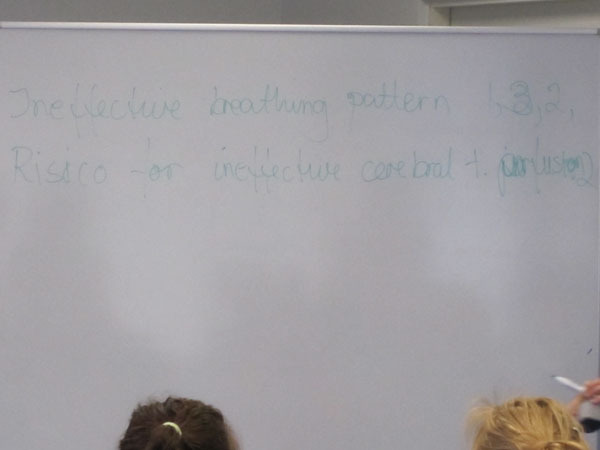 Ineffective breathing pattern 1,3,2,
Risico for ineffective cerebral t.